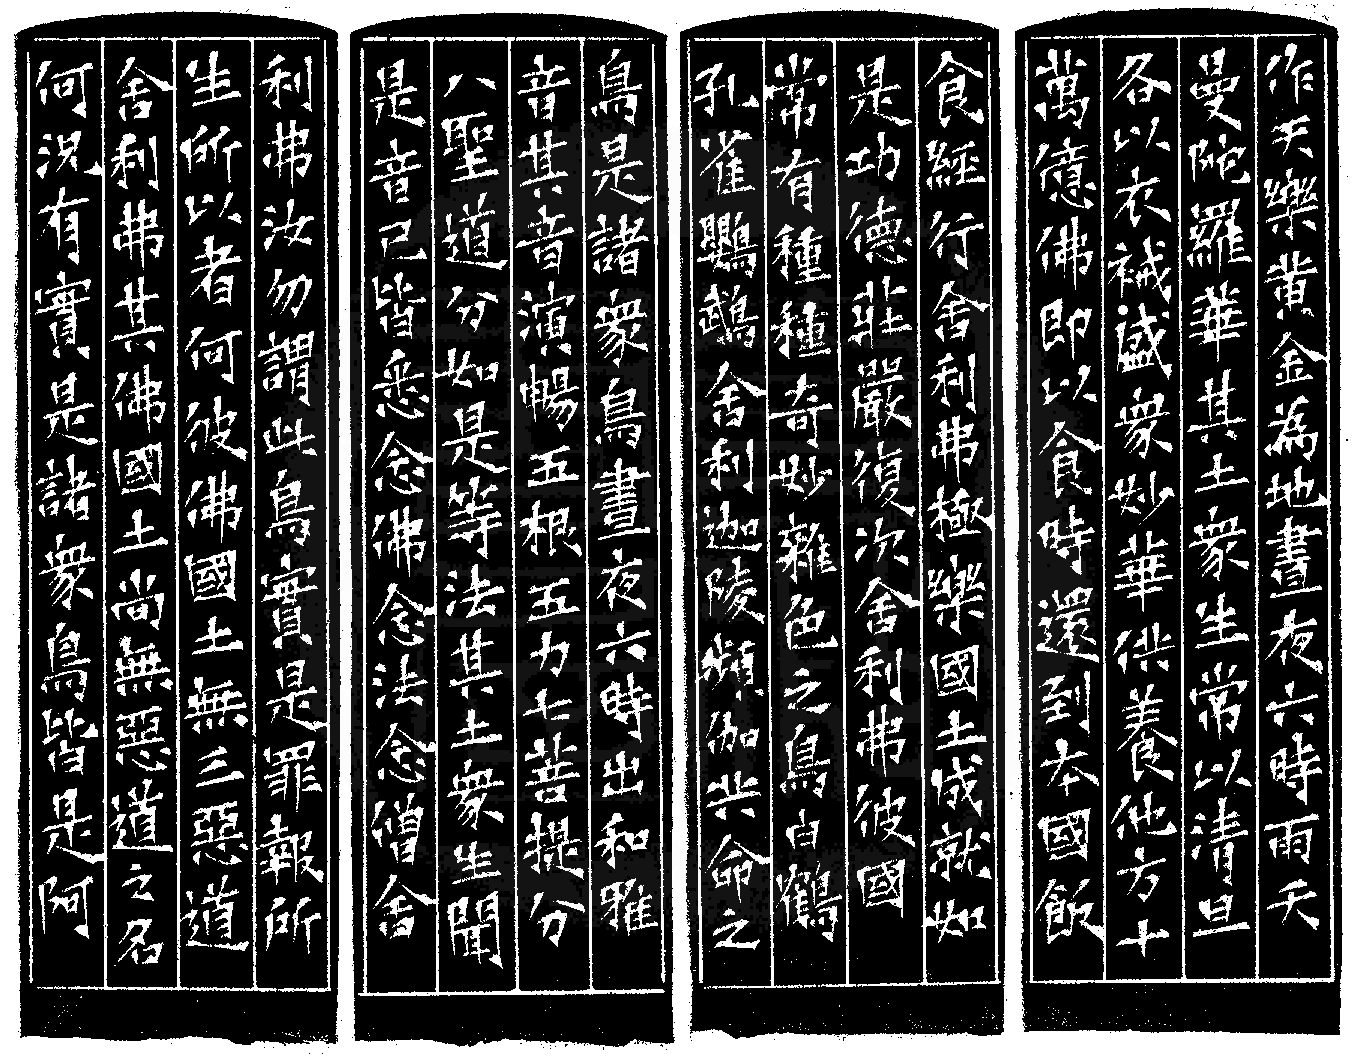 作天樂黃金為地晝夜六時雨天
曼陀羅華其土衆生常以清旦
各以衣裓盛衆妙華供養他方十
萬億佛即以食時還到本國飯
食經行舍利弗極樂國土成就如
是功德莊嚴復次舍利弗彼國
常有種種奇妙雜色之鳥白鶴
孔雀鸚鵡舍利迦陵頻伽共命之
鳥是諸衆鳥晝夜六時出和雅
音其音演暢五根五力七菩提分
八聖道分如是等法其土衆生聞
是音已皆悉念佛念法念僧舍
利弗汝勿謂此鳥實是罪報所
生所以者何彼佛國土無三惡道
舍利弗其佛國土尚無惡道之名
何況有實是諸衆鳥皆是阿